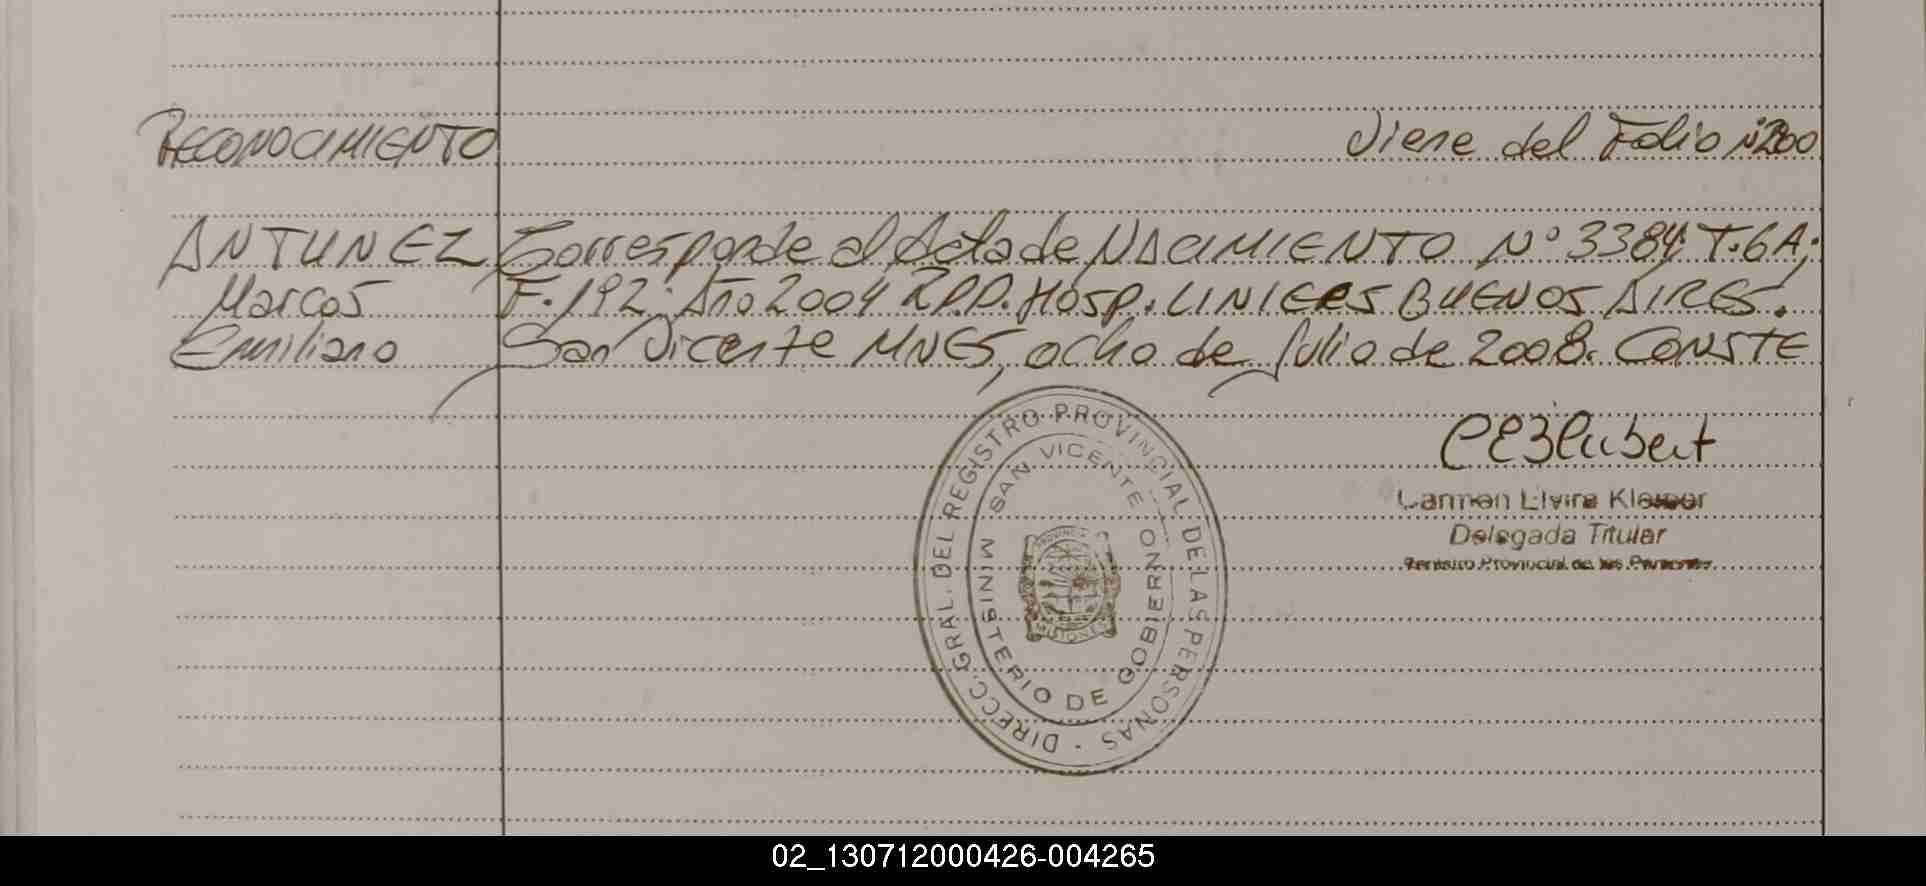 RECONOCIMIENTO
Viene del Folio Nº200
ANTUNEZ Corresponde al Acta de NACIMIENTO Nº 3384 T.6A;
Marcos F.192. Año 2004 R.P.P. Hosp. LINIERS BUENOS AIRES.
Emiliano San Vicente MNES, ocho de Julio de 2008. CONSTE
DIRECC. GRAL. DEL REGISTRO PROVINCIAL DE LAS PERSONAS
MINISTERIO DE GOBIERNO
SAN VICENTE
PROVINCIA
MISIONES
Carmen Elvira
Delegada Titular
Registro Provincial de las Personas
02_130712000426-004265